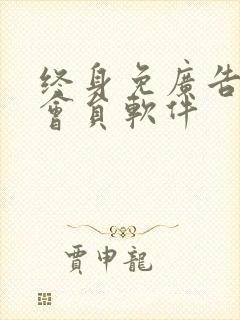 终身免廣告
會員軟件
賈申龍